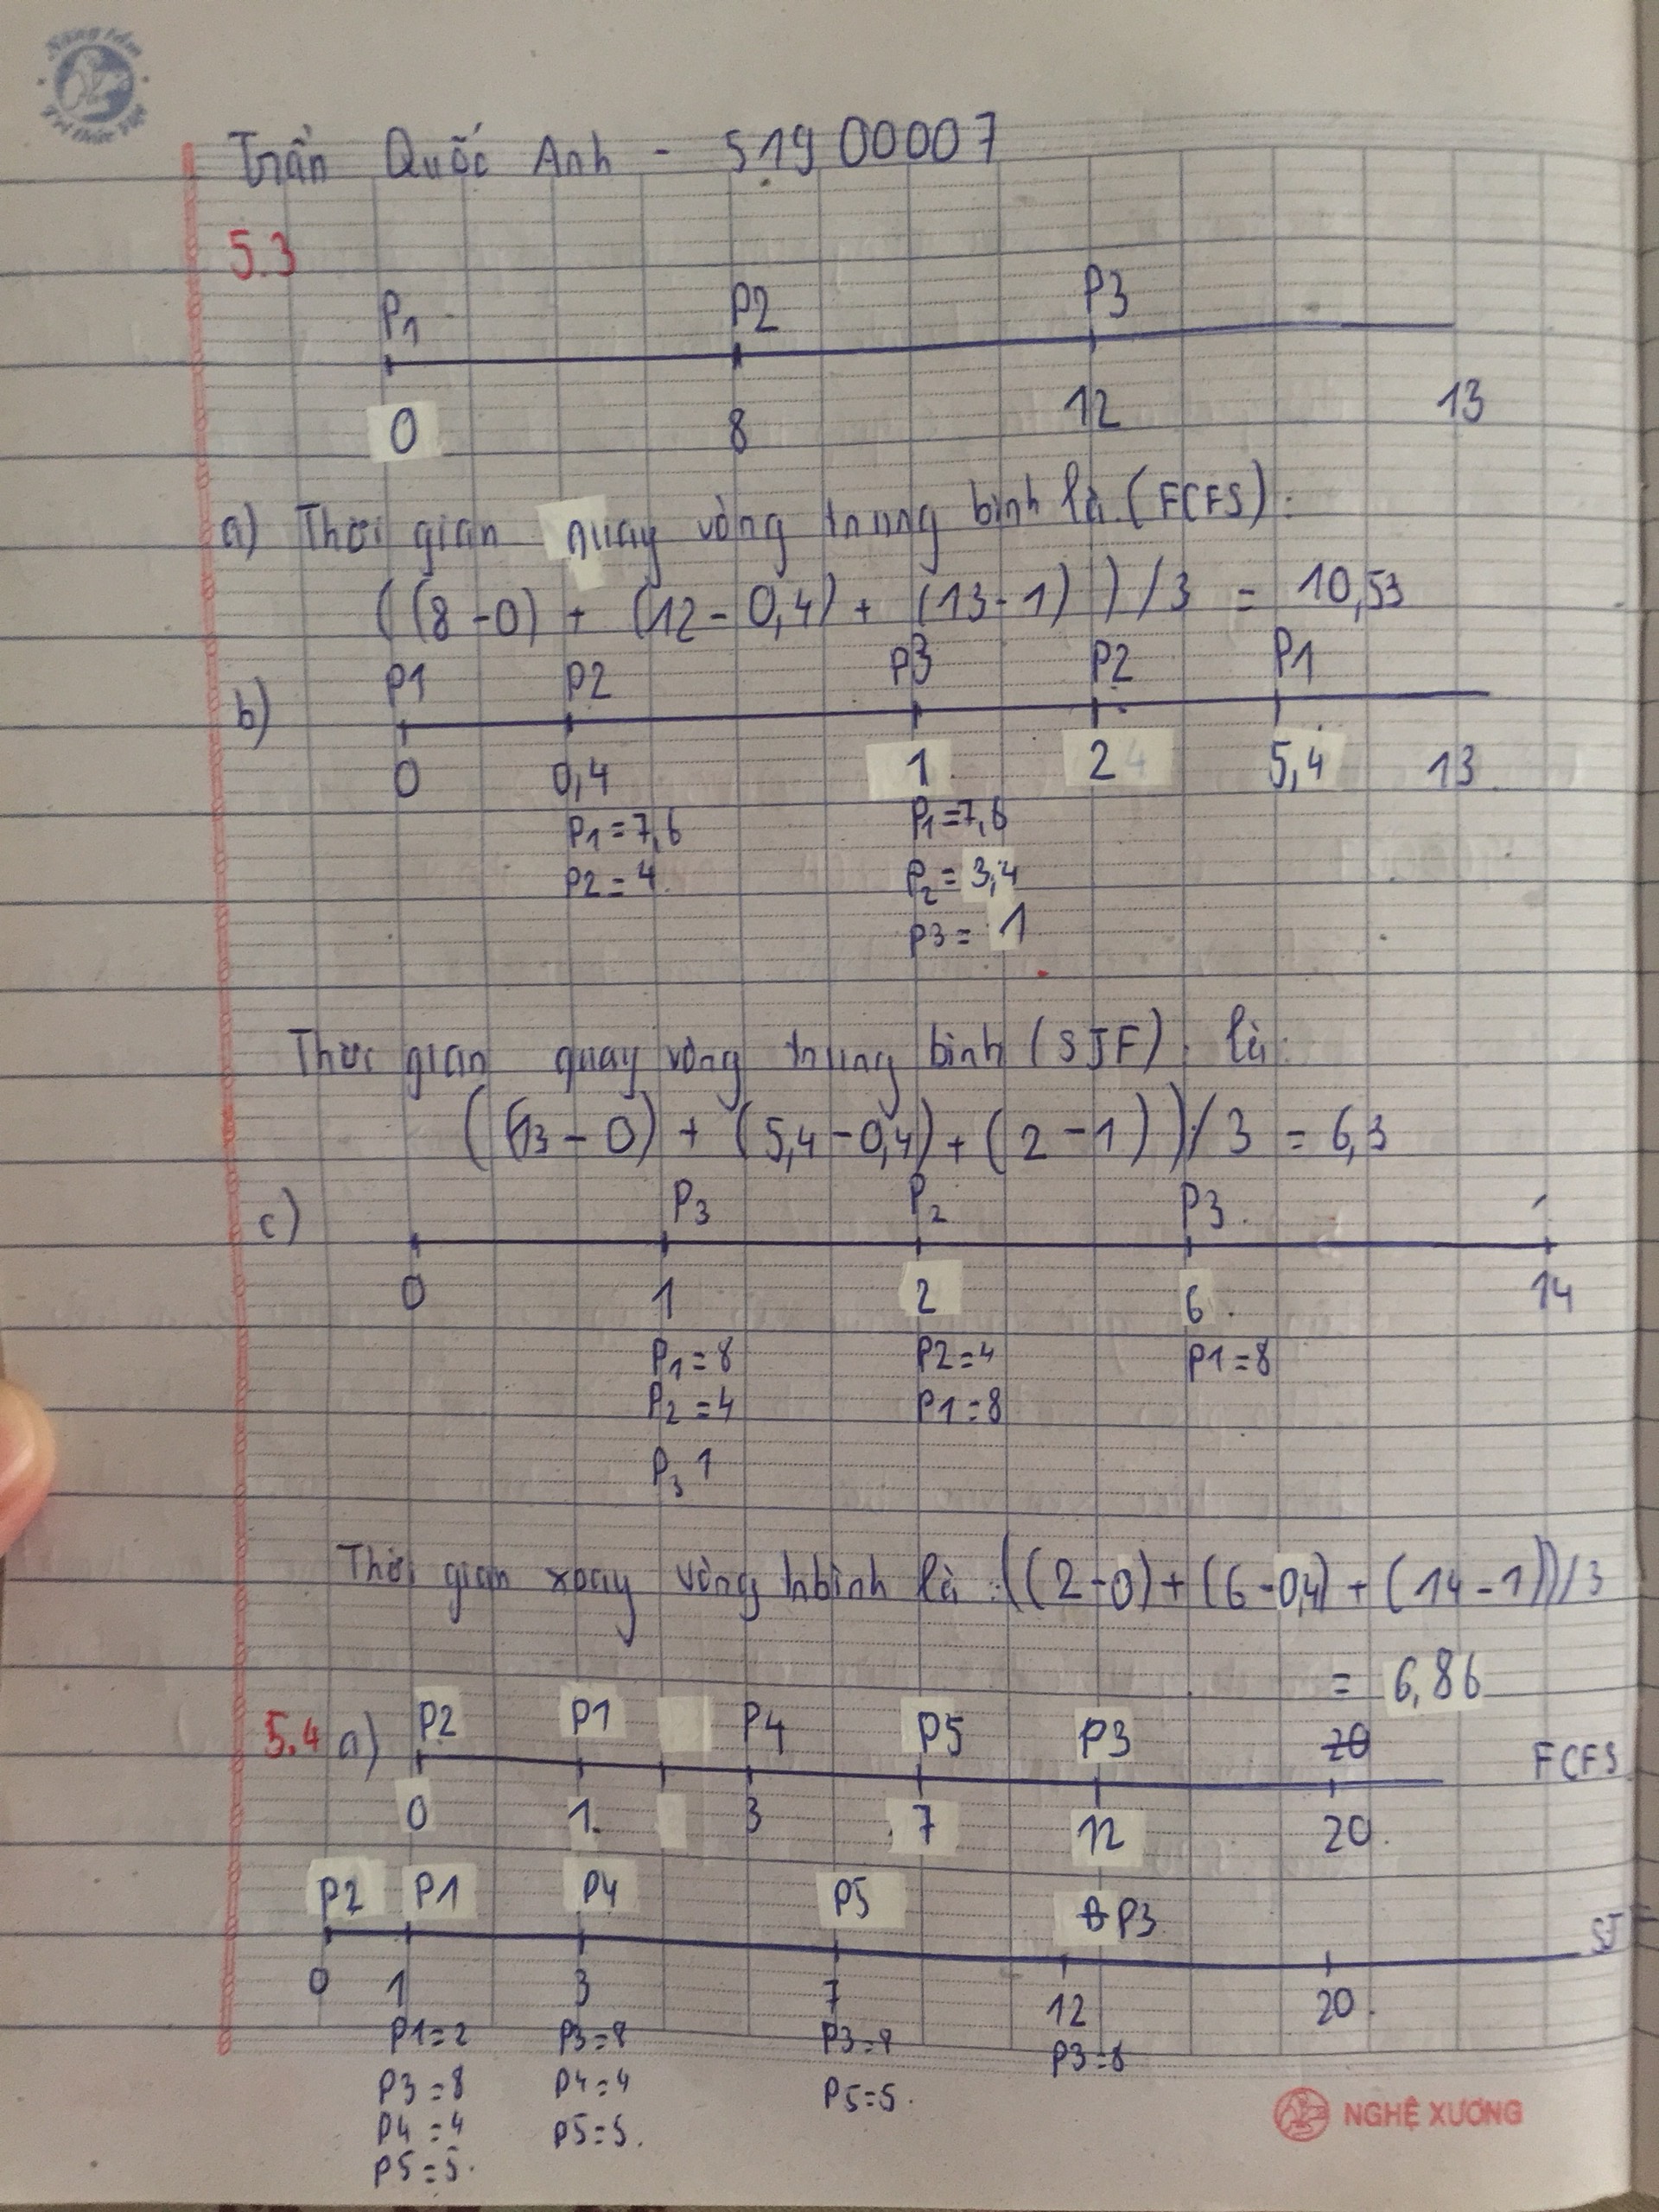 Nâng tầm
Tri thức Việt
Trần Quốc Anh - 51900007
5.3
P1 P2 P3
0 8 12 13
a) Thời gian quay vòng trung bình là (FCFS):
((8-0) + (12-0,4) + (13-1))/3 = 10,53
b) P1 P2 P3 P2 P1
0 0,4 1 2 4 5,4 13
P1=7,6 P1=7,6
P2=4 P2=3,4
P3=1
Thời gian quay vòng trung bình (SJF) là:
((13-0) + (5,4-0,4) + (2-1))/3 = 6,3
c) P3 P2 P3
0 1 2 6 14
P1=8 P2=4 P1=8
P2=4 P1=8
P3 1
Thời gian xoay vòng trbình là: ((2-0)+(6-0,4)+(14-1))/3
= 6,86
5.4 a) P2 P1 P4 P5 P3 20 FCFS
0 1 3 7 12 20
P2 P1 P4 P5 P3 SJ
0 1 3 7 12 20
P1=2 P3=8 P3=8 P3=8
P3=8 P4=4 P5=5
P4=4 P5=5
P5=5
NGHỆ XƯƠNG